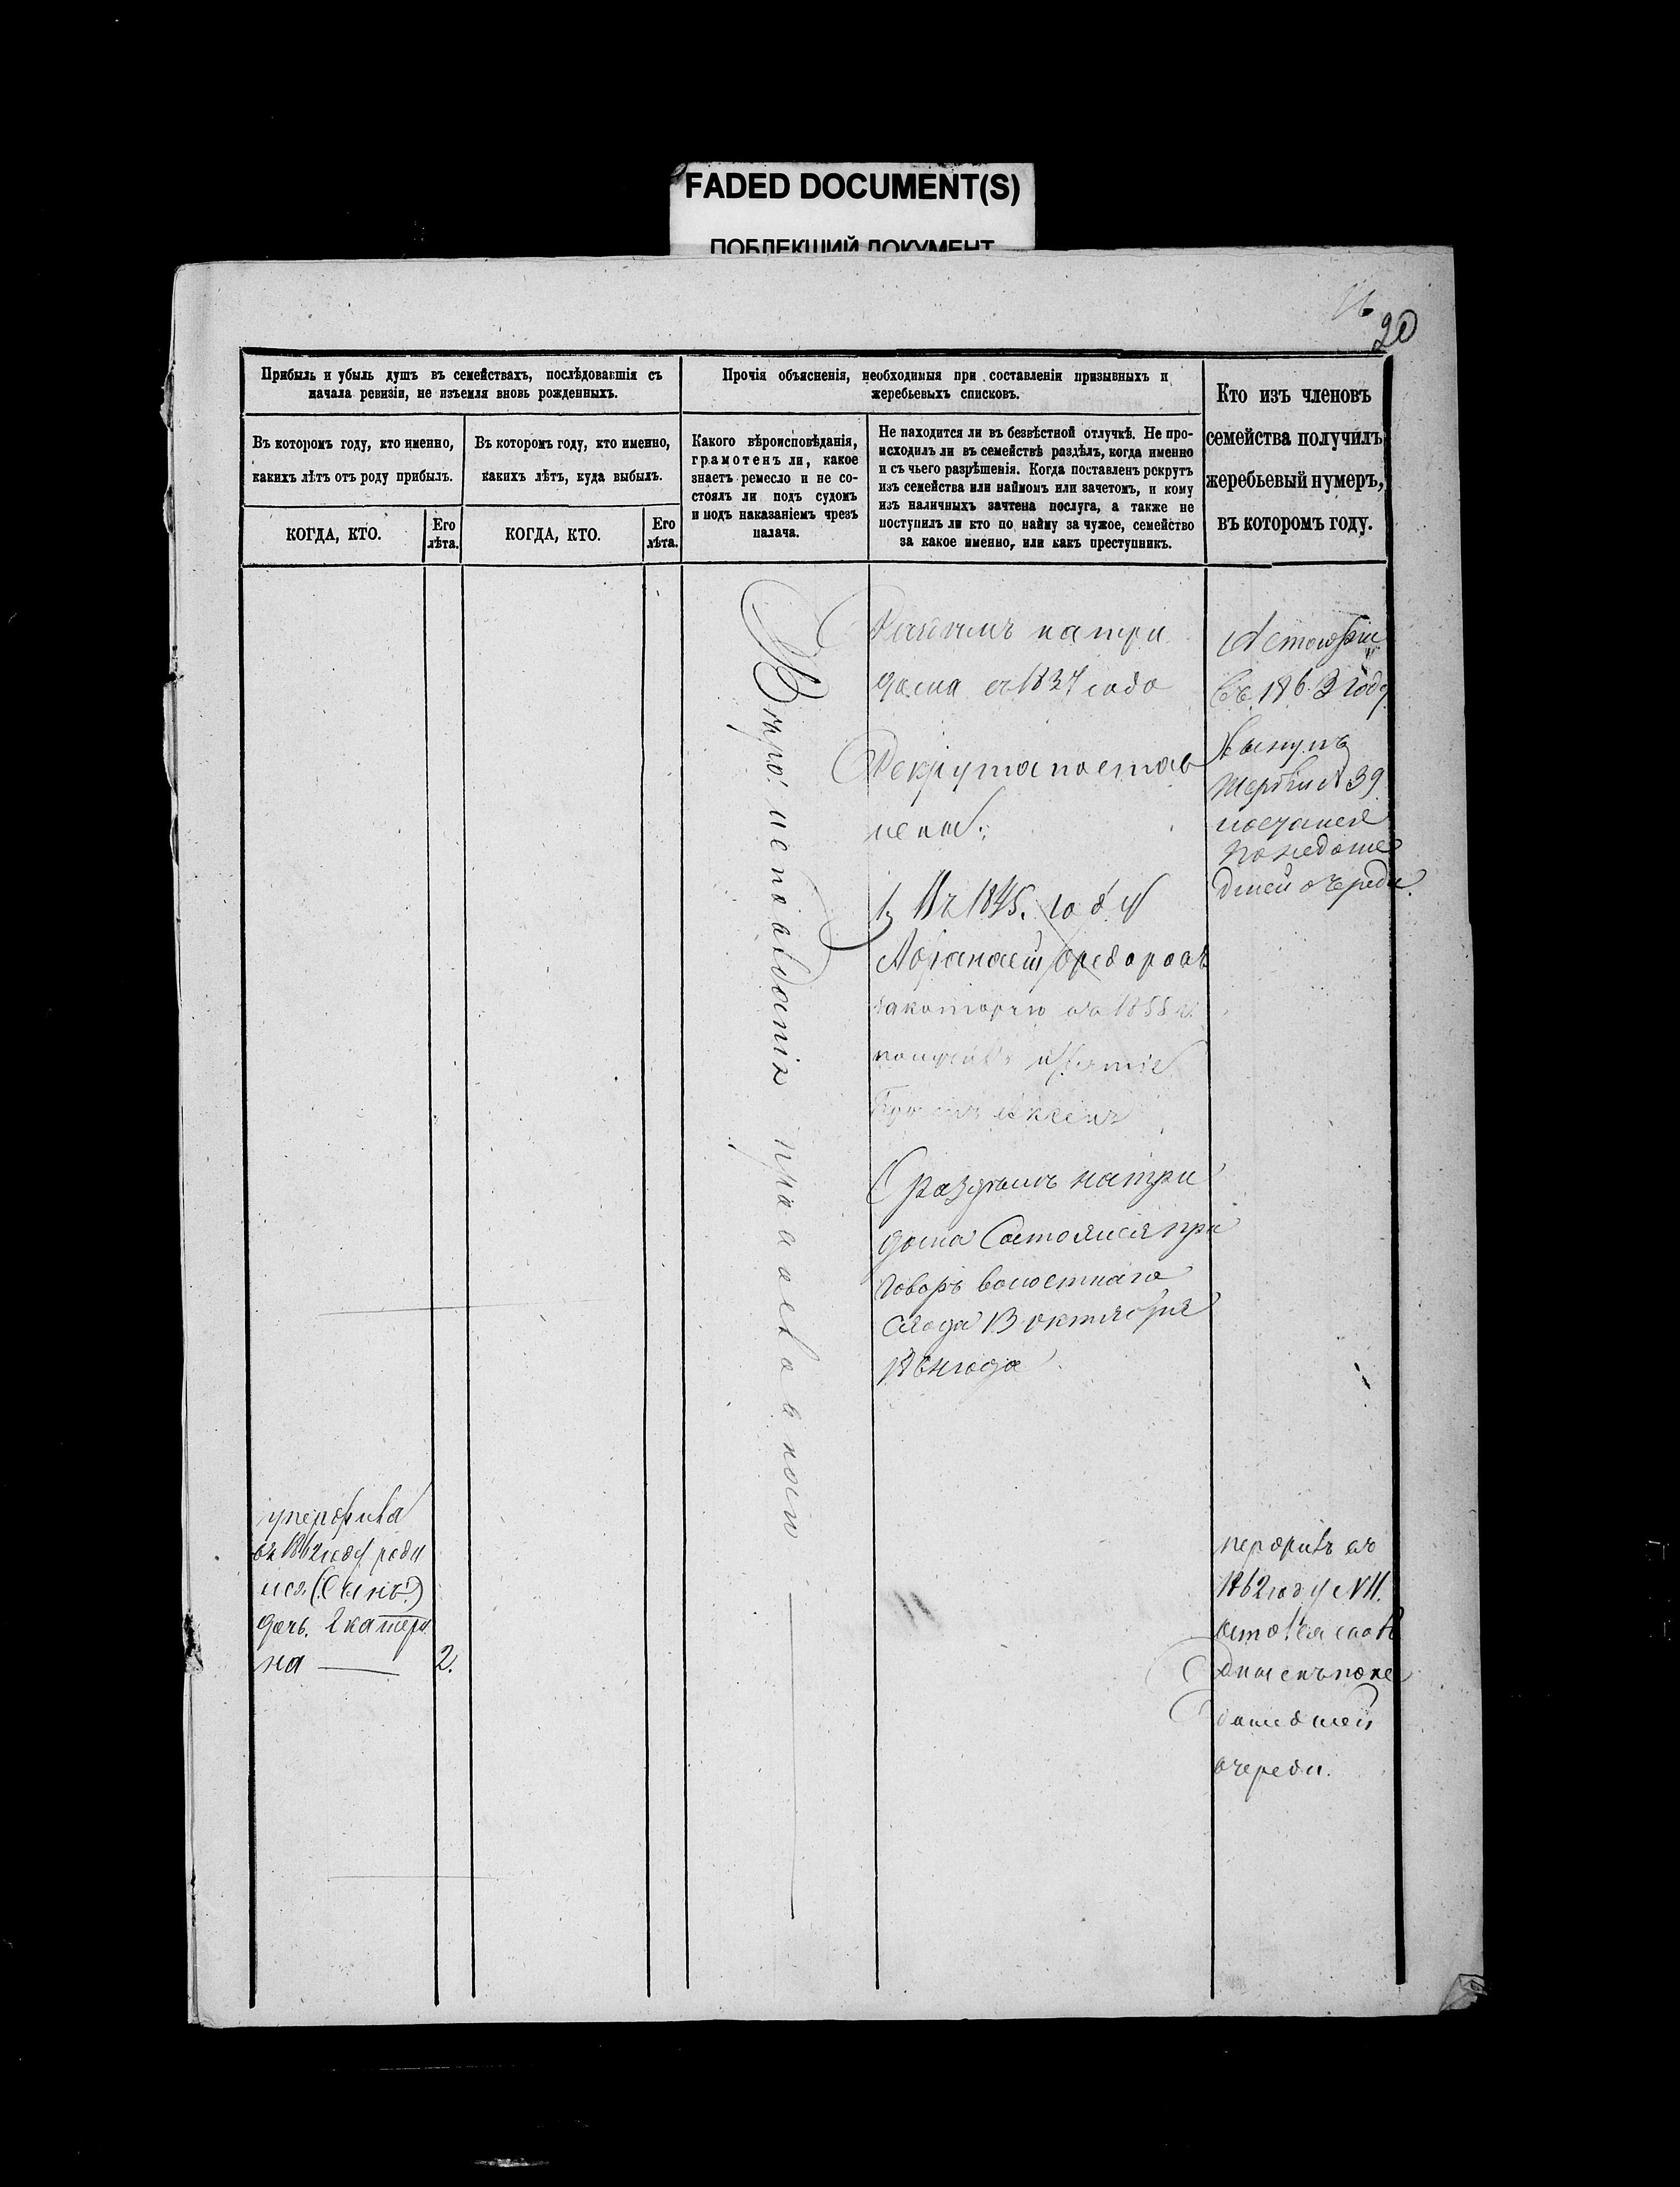 FADED DOCUMENT(S)
ПОБЛЕКШИЙ ДОКУМЕНТ
20
Прибыль и убыль душъ въ семействахъ, послѣдовавшія съ
начала ревизіи, не изъемля вновь рожденныхъ.
Въ которомъ году, кто именно,
какихъ лѣтъ отъ роду прибылъ.
Въ которомъ году, кто именно,
какихъ лѣтъ, куда выбылъ.
КОГДА, КТО.
Его
лѣта.
КОГДА, КТО.
Его
лѣта.
Прочія объясненія, необходимыя при составленіи призывныхъ и
жеребьевыхъ списковъ.
Какого вѣроисповѣданія,
грамотенъ ли, какое
знаетъ ремесло и не со-
стоялъ ли подъ судомъ
и подъ наказаніемъ чрезъ
палача.
Не находится ли въ безвѣстной отлучкѣ. Не про-
исходилъ ли въ семействѣ раздѣлъ, когда именно
и съ чьего разрѣшенія. Когда поставленъ рекрутъ
изъ семейства или наймомъ или зачетомъ, и кому
изъ наличныхъ зачтена послуга, а также не
поступилъ ли кто по найму за чужое, семейство
за какое именно, или какъ преступникъ.
Кто изъ членовъ
семейства получилъ
жеребьевый нумеръ,
въ которомъ году.
у
въ 1862 году роди
лся (Сынъ)
дочь. Екатери
на 2.
Вѣроисповѣданія православнаго
на три
дома съ 1837 года
Рекрута постав
лено:
1, Въ 1845. году
Афанасій Федоровъ
за которую въ 1858 г.
Раздѣлъ на три
дома Состоялся при
говоръ волостнаго
схода 13 октября
года
Въ 1863 году
Вынулъ
жеребій № 39
остался
по недоше
дшей очереди.
въ
1862 году № 11.
остался своб
днымъ по не
дошедшей
очереди.